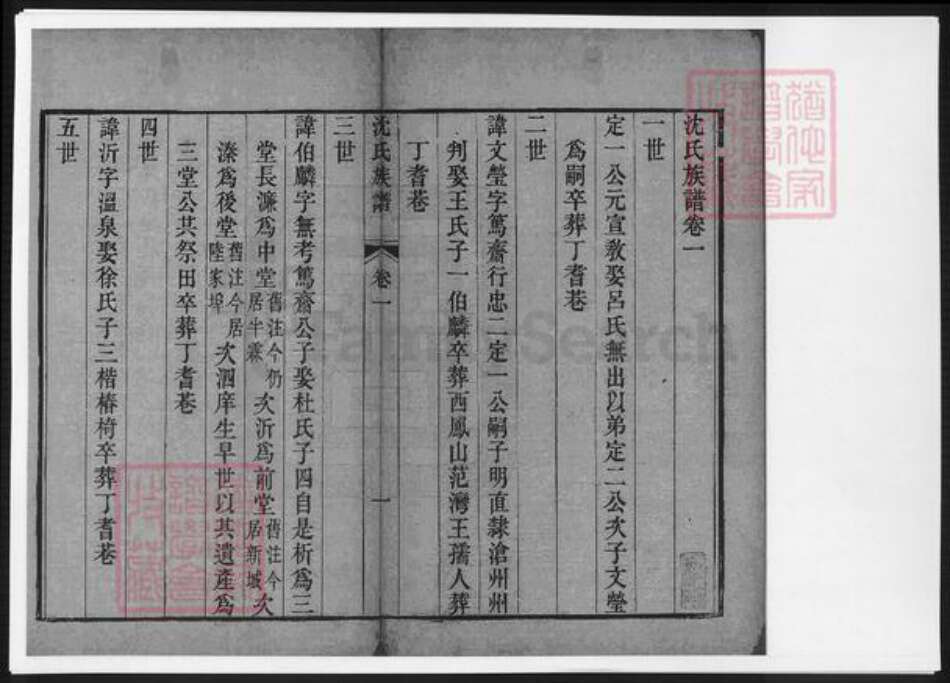 沈氏族譜卷一
一世
定一公元宣敎娶呂氏無出以弟定二公次子文瑩
爲嗣卒葬丁耆巷
二世
諱文瑩字篤齋行忠二定一公嗣子明直隸滄州州
判娶王氏子一伯麟卒葬西鳳山范灣王孺人葬
丁耆巷
沈氏族譜 卷一 一
三世
諱伯麟字無考篤齋公子娶杜氏子四自是析爲三
堂長濂爲中堂舊注今仍居半霖次沂爲前堂舊注今居新城次
溱爲後堂舊注今居陸家埠次泗庠生早世以其遺產爲
三堂公共祭田卒葬丁耆巷
四世
諱沂字溫泉娶徐氏子三楷椿椅卒葬丁耆巷
五世